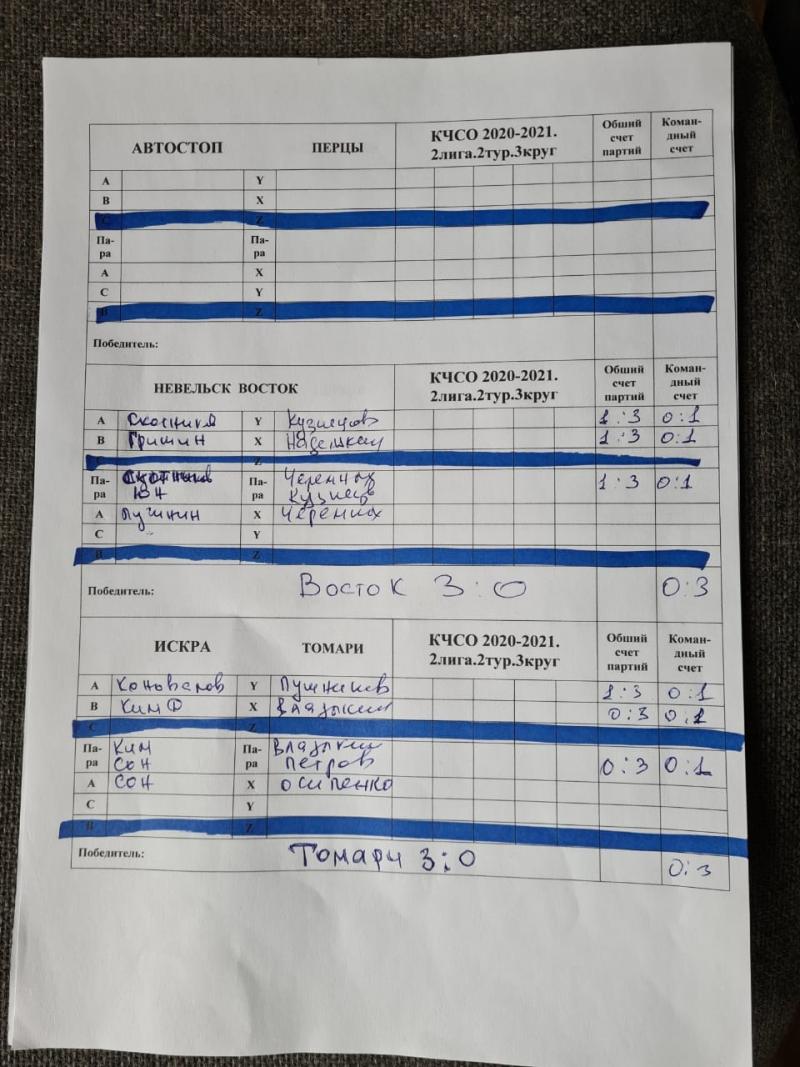 АВТОСТОП ПЕРЦЫ КЧСО 2020-2021. 2лига.2тур.3круг Обший счет партий Коман-дный счет
A Y
B X
C Z
Па-ра Па-ра
A X
C Y
B Z
Победитель:
НЕВЕЛЬСК ВОСТОК КЧСО 2020-2021. 2лига.2тур.3круг Обший счет партий Коман-дный счет
A Y Кузнецов 1:3 0:1
B Гришин X 1:3 0:1
Z
Па-ра Юн Па-ра Черемных Кузнецов 1:3 0:1
A Пушнин X Черемных
C Y
B Z
Победитель: Восток 3:0 0:3
ИСКРА ТОМАРИ КЧСО 2020-2021. 2лига.2тур.3круг Обший счет партий Коман-дный счет
A Коновалов Y 1:3 0:1
B Ким Ф X Владыкин 0:3 0:1
C Z
Па-ра Ким Сон Па-ра Владыкин Петров 0:3 0:1
A Сон X Осипенко
C Y
B Z
Победитель: Томари 3:0 0:3